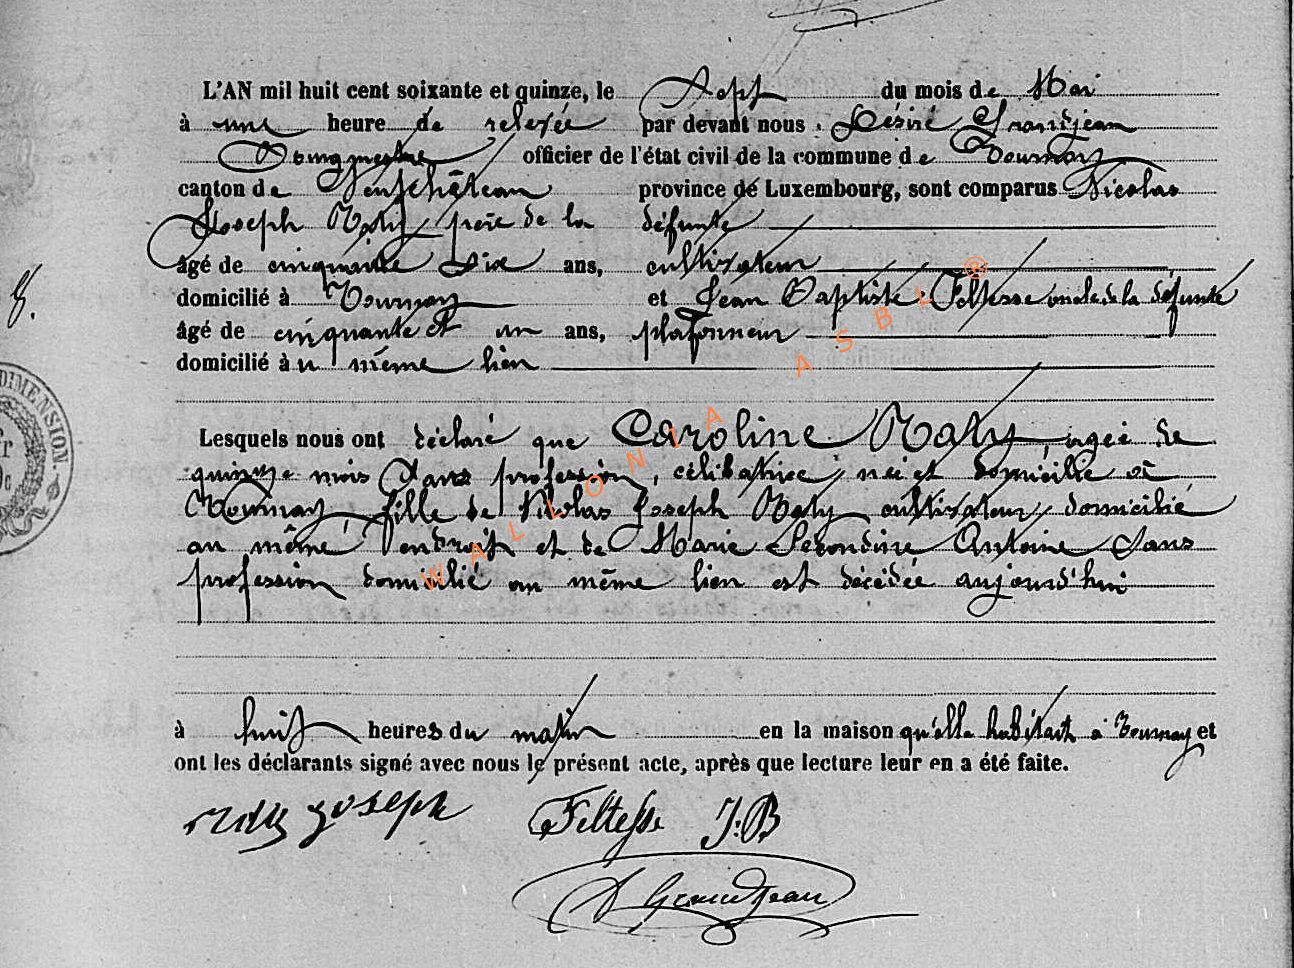 L'AN mil huit cent soixante et quinze, le Sept du mois de Mai
à une heure de relevée par devant nous Désiré Grandjean
Bourgmestre officier de l'état civil de la commune de Tournay
canton de Neufchâteau province de Luxembourg, sont comparus Nicolas
Joseph Maly père de la défunte
âgé de cinquante Six ans, cultivateur
domicilié à Tournay et Jean Baptiste Feltesse oncle de la défunte
âgé de cinquante et un ans, plafonneur
domicilié au même lieu
8.
DIMENSION.
Lesquels nous ont déclaré que Caroline Maly agée de
quinze mois Sans profession, célibatrice, née et domiciliée à
Tournay, fille de Nicolas Joseph Maly cultivateur, domicilié
au même endroit et de Marie Secondine Antoine Sans
profession domicilié au même lieu est décédée aujourd'hui
à huit heures du matin en la maison qu'elle habitait à Tournay et
ont les déclarants signé avec nous le présent acte, après que lecture leur en a été faite.
Maly joseph Feltesse J:B
D Grandjean
WALLONIA ASBL ®